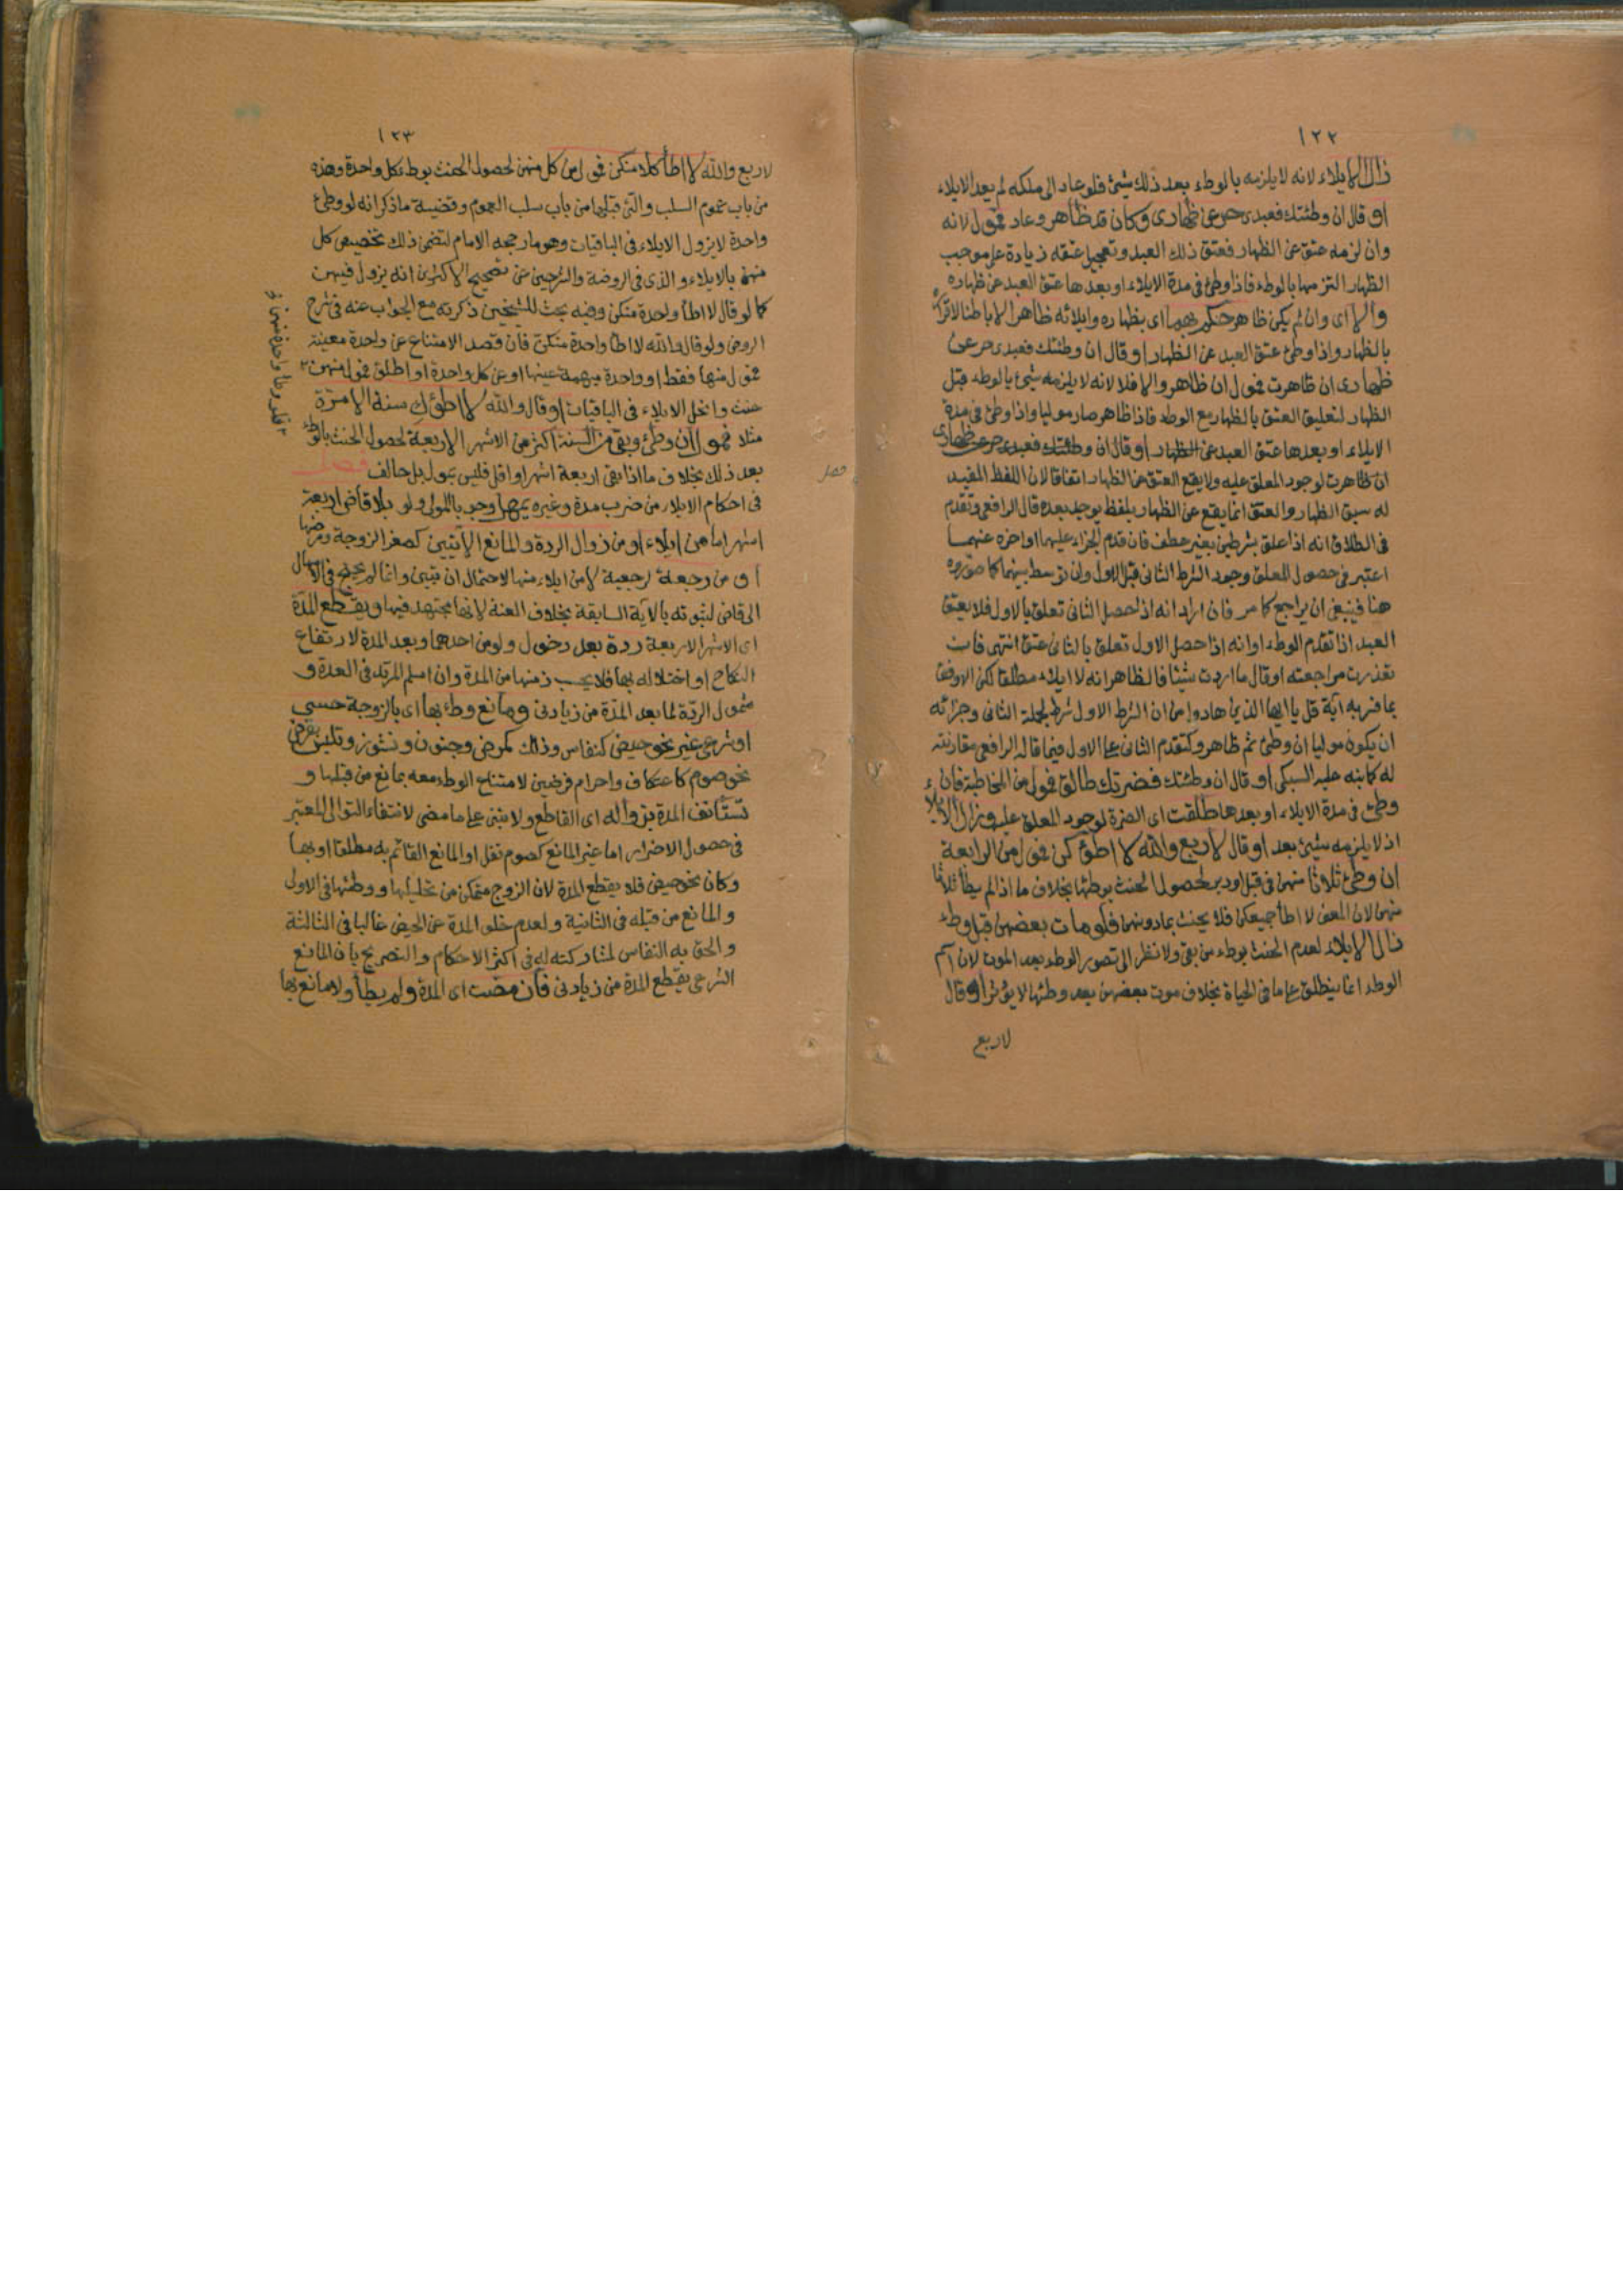 ١٢٢
زال الايلاء لانه لا يلزمه بالوطء بعد ذلك شئ فلو عاد الى ملكه لم يعد الايلاء
او قال ان وطئتك فعبدى حر عن ظهارى وكان قد ظاهر وعاد فمول لانه
وان لزمه عتق عن الظهار فعتق ذلك العبد وتعجيل عتقه زيادة على موجب
الظهار التزمها بالوطء فاذا وطئ فى مدة الايلاء او بعدها عتق العبد عن ظهاره
والا اى وان لم يكن ظاهر حكم بهما اى بظهاره وايلائه ظاهرا لا باطنا لاقراره
بالظهار واذا وطئ عتق العبد عن الظهار او قال ان وطئتك فعبدى حر عن
ظهارى ان ظاهرت فمول ان ظاهر والا فلا لانه لا يلزمه شئ بالوطء قبل
الظهار لتعليق العتق بالظهار مع الوطء فاذا ظاهر صار موليا واذا وطئ فى مدة
الايلاء او بعدها عتق العبد عن الظهار او قال ان وطئتك فعبدى حر عن ظهارى
ان ظاهرت لوجود المعلق عليه ولا يقع العتق عن الظهار اتفاقا لان اللفظ المفيد
له سبق الظهار والعتق انما يقع عن الظهار بلفظ يوجد بعده قال الرافعى وتقدم
فى الطلاق انه اذا علق بشرطين بغير عطف فان قدم الجزاء عليهما او اخره عنهما
اعتبر فى حصول المعلق وجود الشرط الثانى قبل الاول وان توسط بينهما كما صوروه
هنا فينبغى ان يراجع كما مر فان اراد انه اذا حصل الثانى تعلق بالاول فلا يعتق
العبد اذا تقدم الوطء او انه اذا حصل الاول تعلق بالثانى عتق انتهى فان
تعذرت مراجعته او قال ما اردت شيئا فالظاهر انه لا ايلاء مطلقا لكن الاوفق
بما فسر به آية قل يا ايها الذين هادوا من ان الشرط الاول شرط لجملة الثانى وجزائه
ان يكون موليا ان وطئ ثم ظاهر وكتقدم الثانى على الاول فيما قاله الرافعى مقارنته
له كما نبه عليه السبكى او قال ان وطئتك فضرتك طالق فمول من المخاطبة فان
وطئ فى مدة الايلاء او بعدها طلقت اى الضرة لوجود المعلق عليه وزال الايلاء
اذ لا يلزمه شئ بعد او قال لاربع والله لا اطؤكن فمول من الرابعة
ان وطئ ثلاثا منهن فى قبل او دبر لحصول الحنث بوطئها بخلاف ما اذا لم يطأ ثلاثا
منهن لان المعنى لا اطأ جميعكن فلا يحنث بما دونهن فلو مات بعضهن قبل وطء
زال الايلاء لعدم الحنث بوطء من بقى ولا نظر الى تصور الوطء بعد الموت لان اسم
الوطء انما ينطلق على ما فى الحياة بخلاف موت بعضهن بعد وطئها لا يؤثر او قال
لاربع
١٢٣
لاربع والله لا اطأ كلا منكن فمول من كل منهن لحصول الحنث بوطء كل واحدة وهذه
من باب عموم السلب والتى قبلها من باب سلب العموم وقضية ما ذكر انه لو وطئ
واحدة لا يزول الايلاء فى الباقيات وهو ما رجحه الامام لتضمن ذلك تخصيص كل
منهن بالايلاء والذى فى الروضة والشرحين عن تصحيح الاكثرين انه يزول فيهن
كما لو قال لا اطأ واحدة منكن وفيه بحث للشيخين ذكرته مع الجواب عنه فى شرح
الروض ولو قال والله لا اطأ واحدة منكن فان قصد الامتناع عن واحدة معينة
فمول منها فقط او واحدة مبهمة عينها او عن كل واحدة او اطلق فمول منهن
حنث وانحل الايلاء فى الباقيات او قال والله لا اطؤك سنة الا مرة
مثلا فمول ان وطئ وبقى من السنة اكثر من الاشهر الاربعة لحصول الحنث بالوطء
بعد ذلك بخلاف ما اذا بقى اربعة اشهر او اقل فليس بمول بل حالف فصل
فى احكام الايلاء من ضرب مدة وغيره يمهل وجوبا المولى ولو بلا قاض اربعة
اشهر اما من ايلاء او من زوال الردة والمانع الآتيين كصغر الزوجة ومرضها
او من رجعة لرجعية لا من ايلاء منها لاحتمال ان تبين وانما لم يحتج فى الامهال
الى قاض لثبوته بالآية السابقة بخلاف العنة لانها مجتهد فيها ويقطع المدة
اى الاشهر الاربعة ردة بعد دخول ولو من احدهما وبعد المدة لارتفاع
النكاح او اختلاله بها فلا يحسب زمنها من المدة وان اسلم المرتد فى العدة و
شمول الردة لما بعد المدة من زيادتى ومانع وطء بها اى بالزوجة حسى
او شرعى غير نحو حيض كنفاس وذلك كمرض وجنون ونشوز وتلبس بفرض
نحو صوم كاعتكاف واحرام فرضين لامتناع الوطء معه بمانع من قبلها و
تستأنف المدة بزواله اى القاطع ولا تبنى على ما مضى لانتفاء التوالى المعتبر
فى حصول الاضرار اما غير المانع كصوم نفل او المانع القائم به مطلقا او بها
وكان نحو حيض فلا يقطع المدة لان الزوج متمكن من تحليلها ووطئها فى الاول
والمانع من قبله فى الثانية ولعدم خلو المدة عن الحيض غالبا فى الثالثة
والحق به النفاس لمشاركته له فى اكثر الاحكام والتصريح بان المانع
الشرعى يقطع المدة من زيادتى فان مضت اى المدة ولم يطأ ولا مانع بها
فلو وطئ واحدة منهن